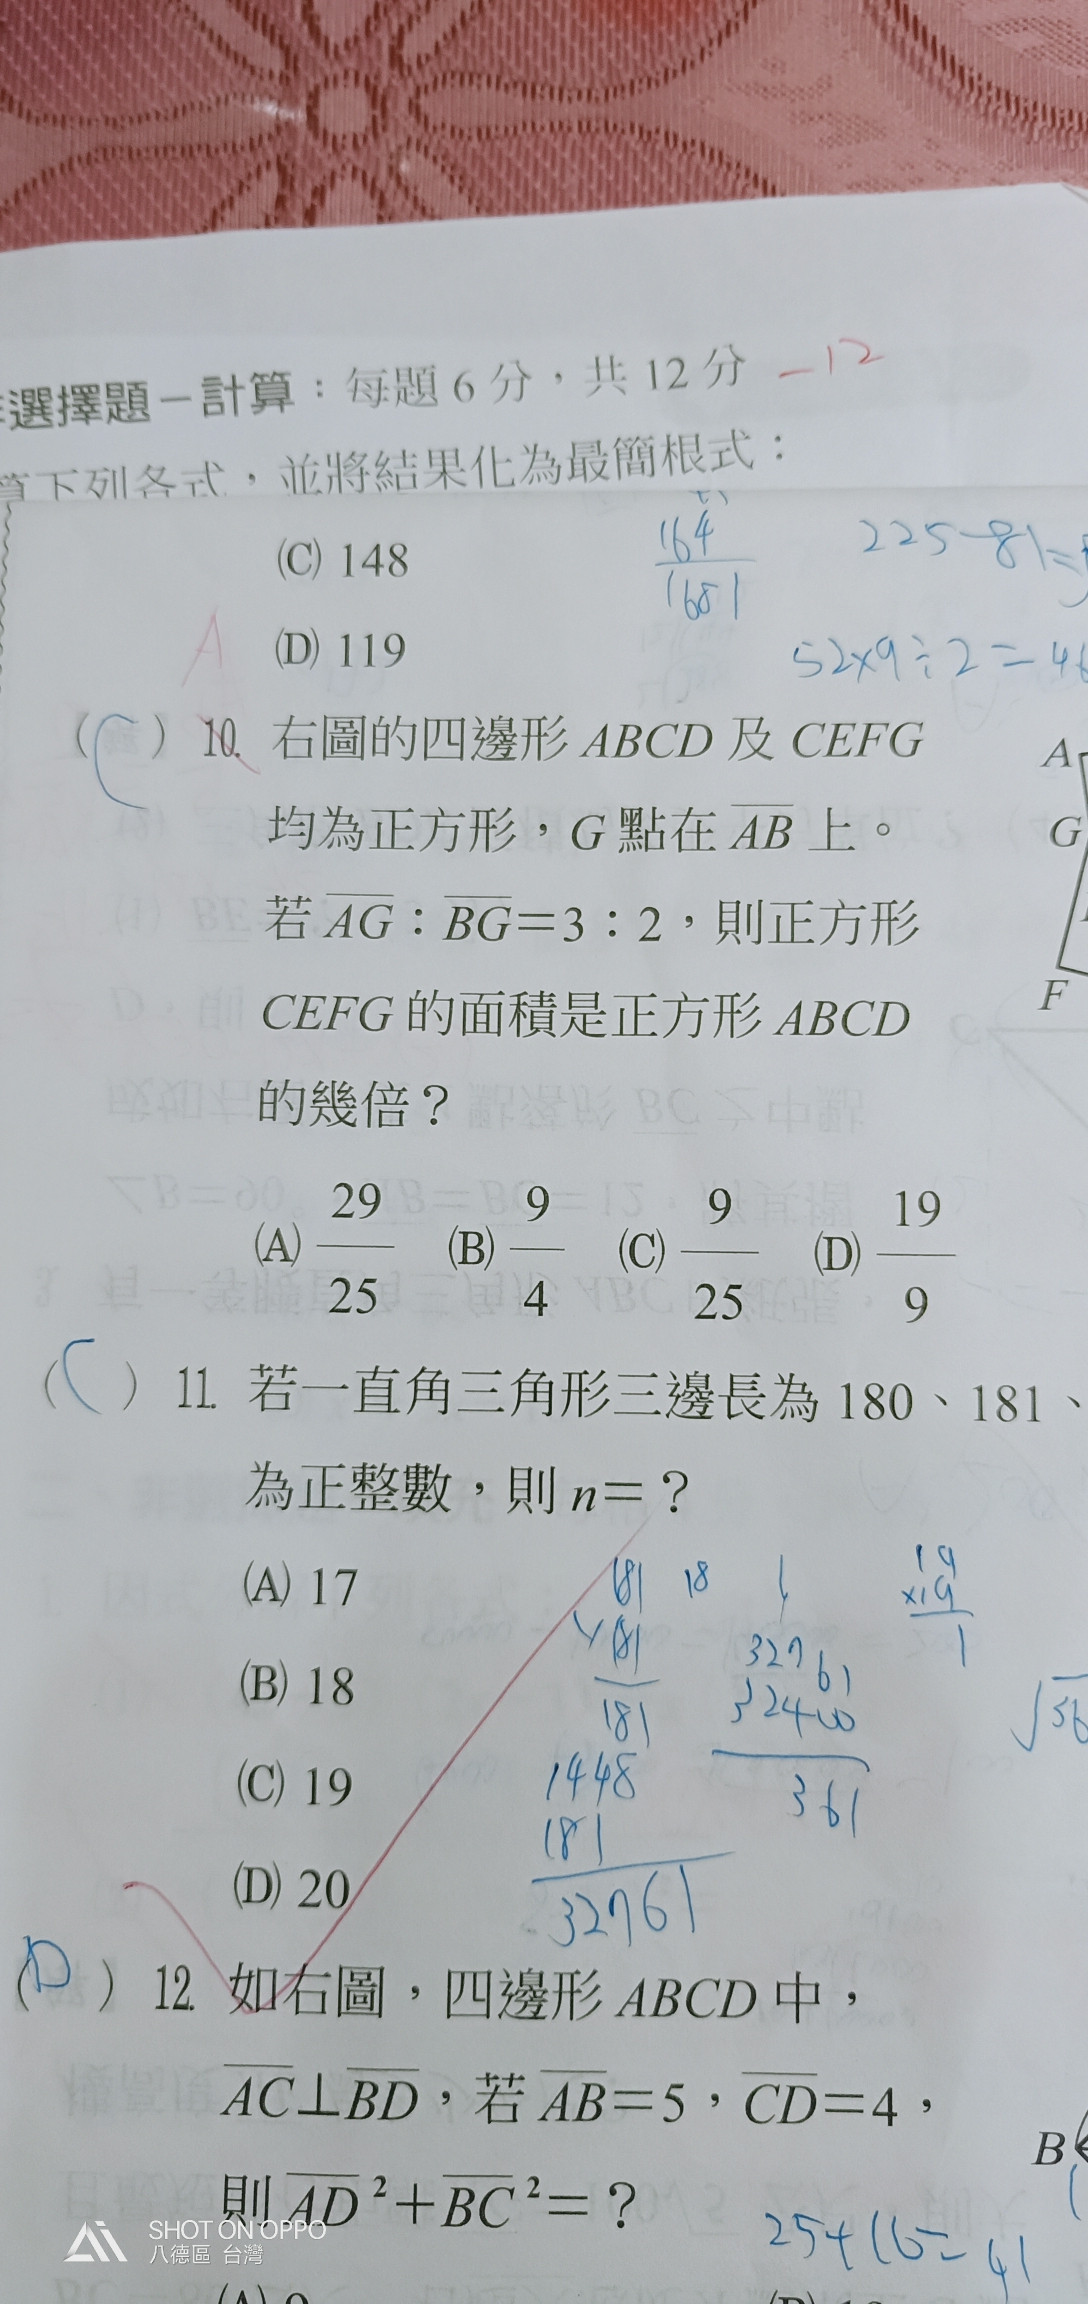 選擇題－計算：每題 6 分，共 12 分 －12
算下列各式，並將結果化為最簡根式：
(C) 148
164
1681
225－81＝
(D) 119
52×9÷2＝46
A
(C) 10. 右圖的四邊形 ABCD 及 CEFG
均為正方形，G 點在 AB 上。
若 AG：BG＝3：2，則正方形
CEFG 的面積是正方形 ABCD
的幾倍？
A
G
F
(A) 29/25 (B) 9/4 (C) 9/25 (D) 19/9
(C) 11. 若一直角三角形三邊長為 180、181、
為正整數，則 n＝？
(A) 17
(B) 18
(C) 19
(D) 20
181
×181
181
1448
181
32761
18
32761
32400
361
19
×19
1
√36
(D) 12. 如右圖，四邊形 ABCD 中，
AC⊥BD，若 AB＝5，CD＝4，
則 AD²＋BC²＝？
B
25+16=41
SHOT ON OPPO
八德區 台灣
(A) 9